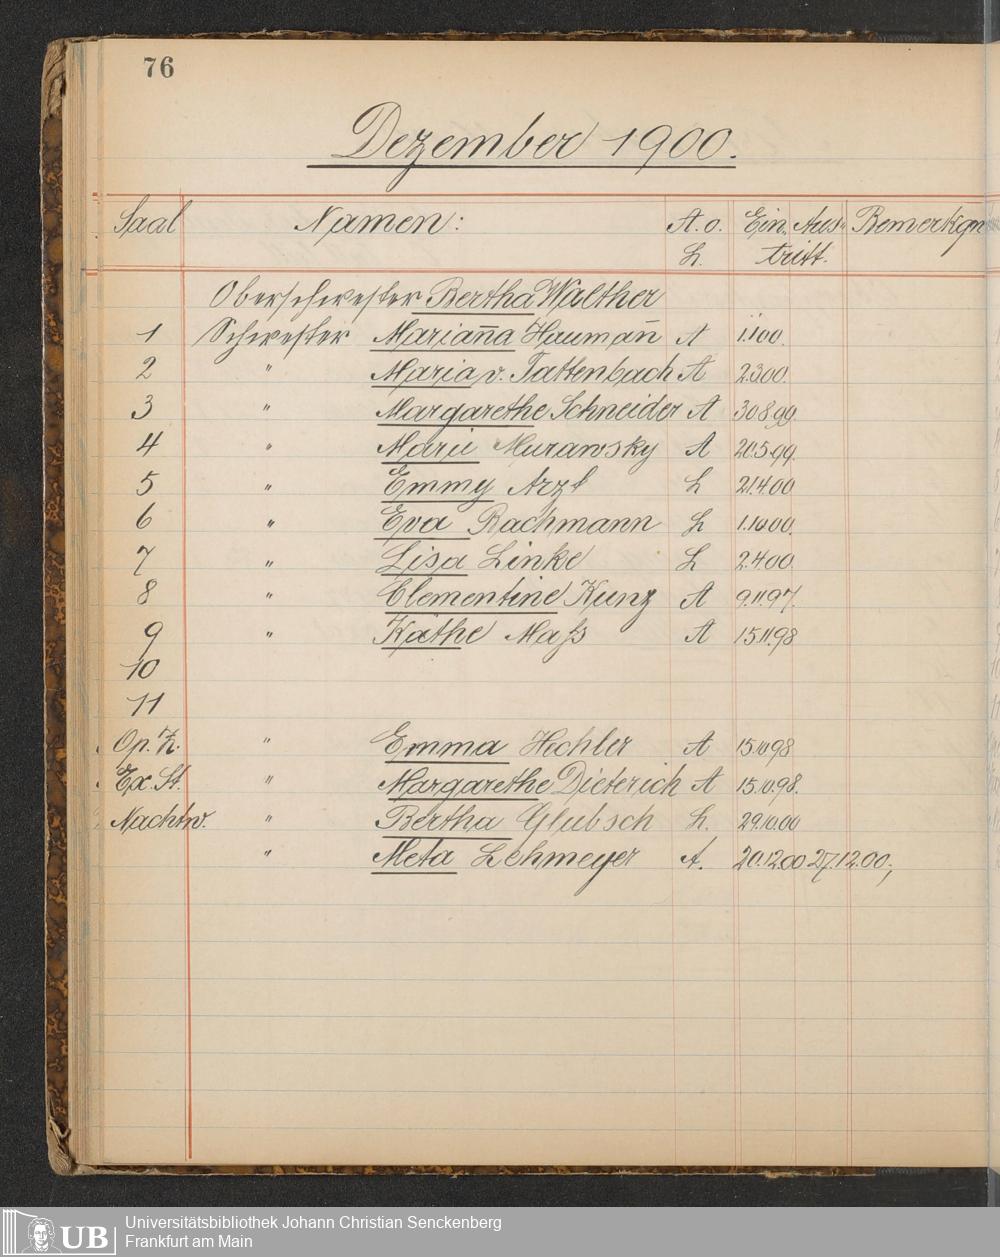 76
Dezember 1900.
Saal Namen: A. o. L. Ein- Aus- tritt. Bemerkgn
Oberschwester Bertha Walther
1 Schwester Marian̄a Hauman̄ A 1.1.00.
2 " Maria v. Tattenbach A 2.3.00.
3 " Margarethe Schneider A 30.8.99.
4 " Marie Murawsky A 20.5.99.
5 " Emmy Arzt L 21.4.00
6 " Eva Rachmann L 1.10.00.
7 " Lisa Linke L 2.4.00.
8 " Clementine Kunz A 9.11.97.
9 " Käthe Maſs A 15.11.98
10
11
Op. Z. " Emma Hechler A 15.10.98
Ex. St. " Margarethe Dieterich A 15.10.98.
Nachtw. " Bertha Glubsch L. 29.10.00
" Meta Lehmeyer A. 20.12.00 27.12.00;
UB Universitätsbibliothek Johann Christian Senckenberg
Frankfurt am Main